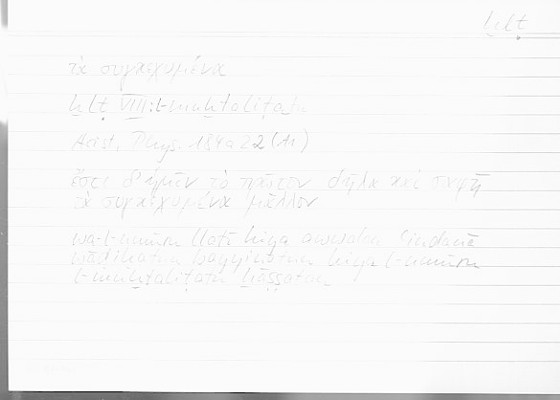 ḫlṭ
τὰ συγκεχυμένα
ḫlṭ VIII: l-muḫtaliṭatu
Arist. Phys. 184a22 (A1)
ἔστι δ' ἡμῖν τὸ πρῶτον δῆλα καὶ σαφῆ
τὰ συγκεχυμένα μᾶλλον
wa-l-umūru llatī hiya awwalan ʿindanā
wāḍiḥatun bayyinatun hiya l-umūru
l-muḫtaliṭatu ḫāṣṣatan